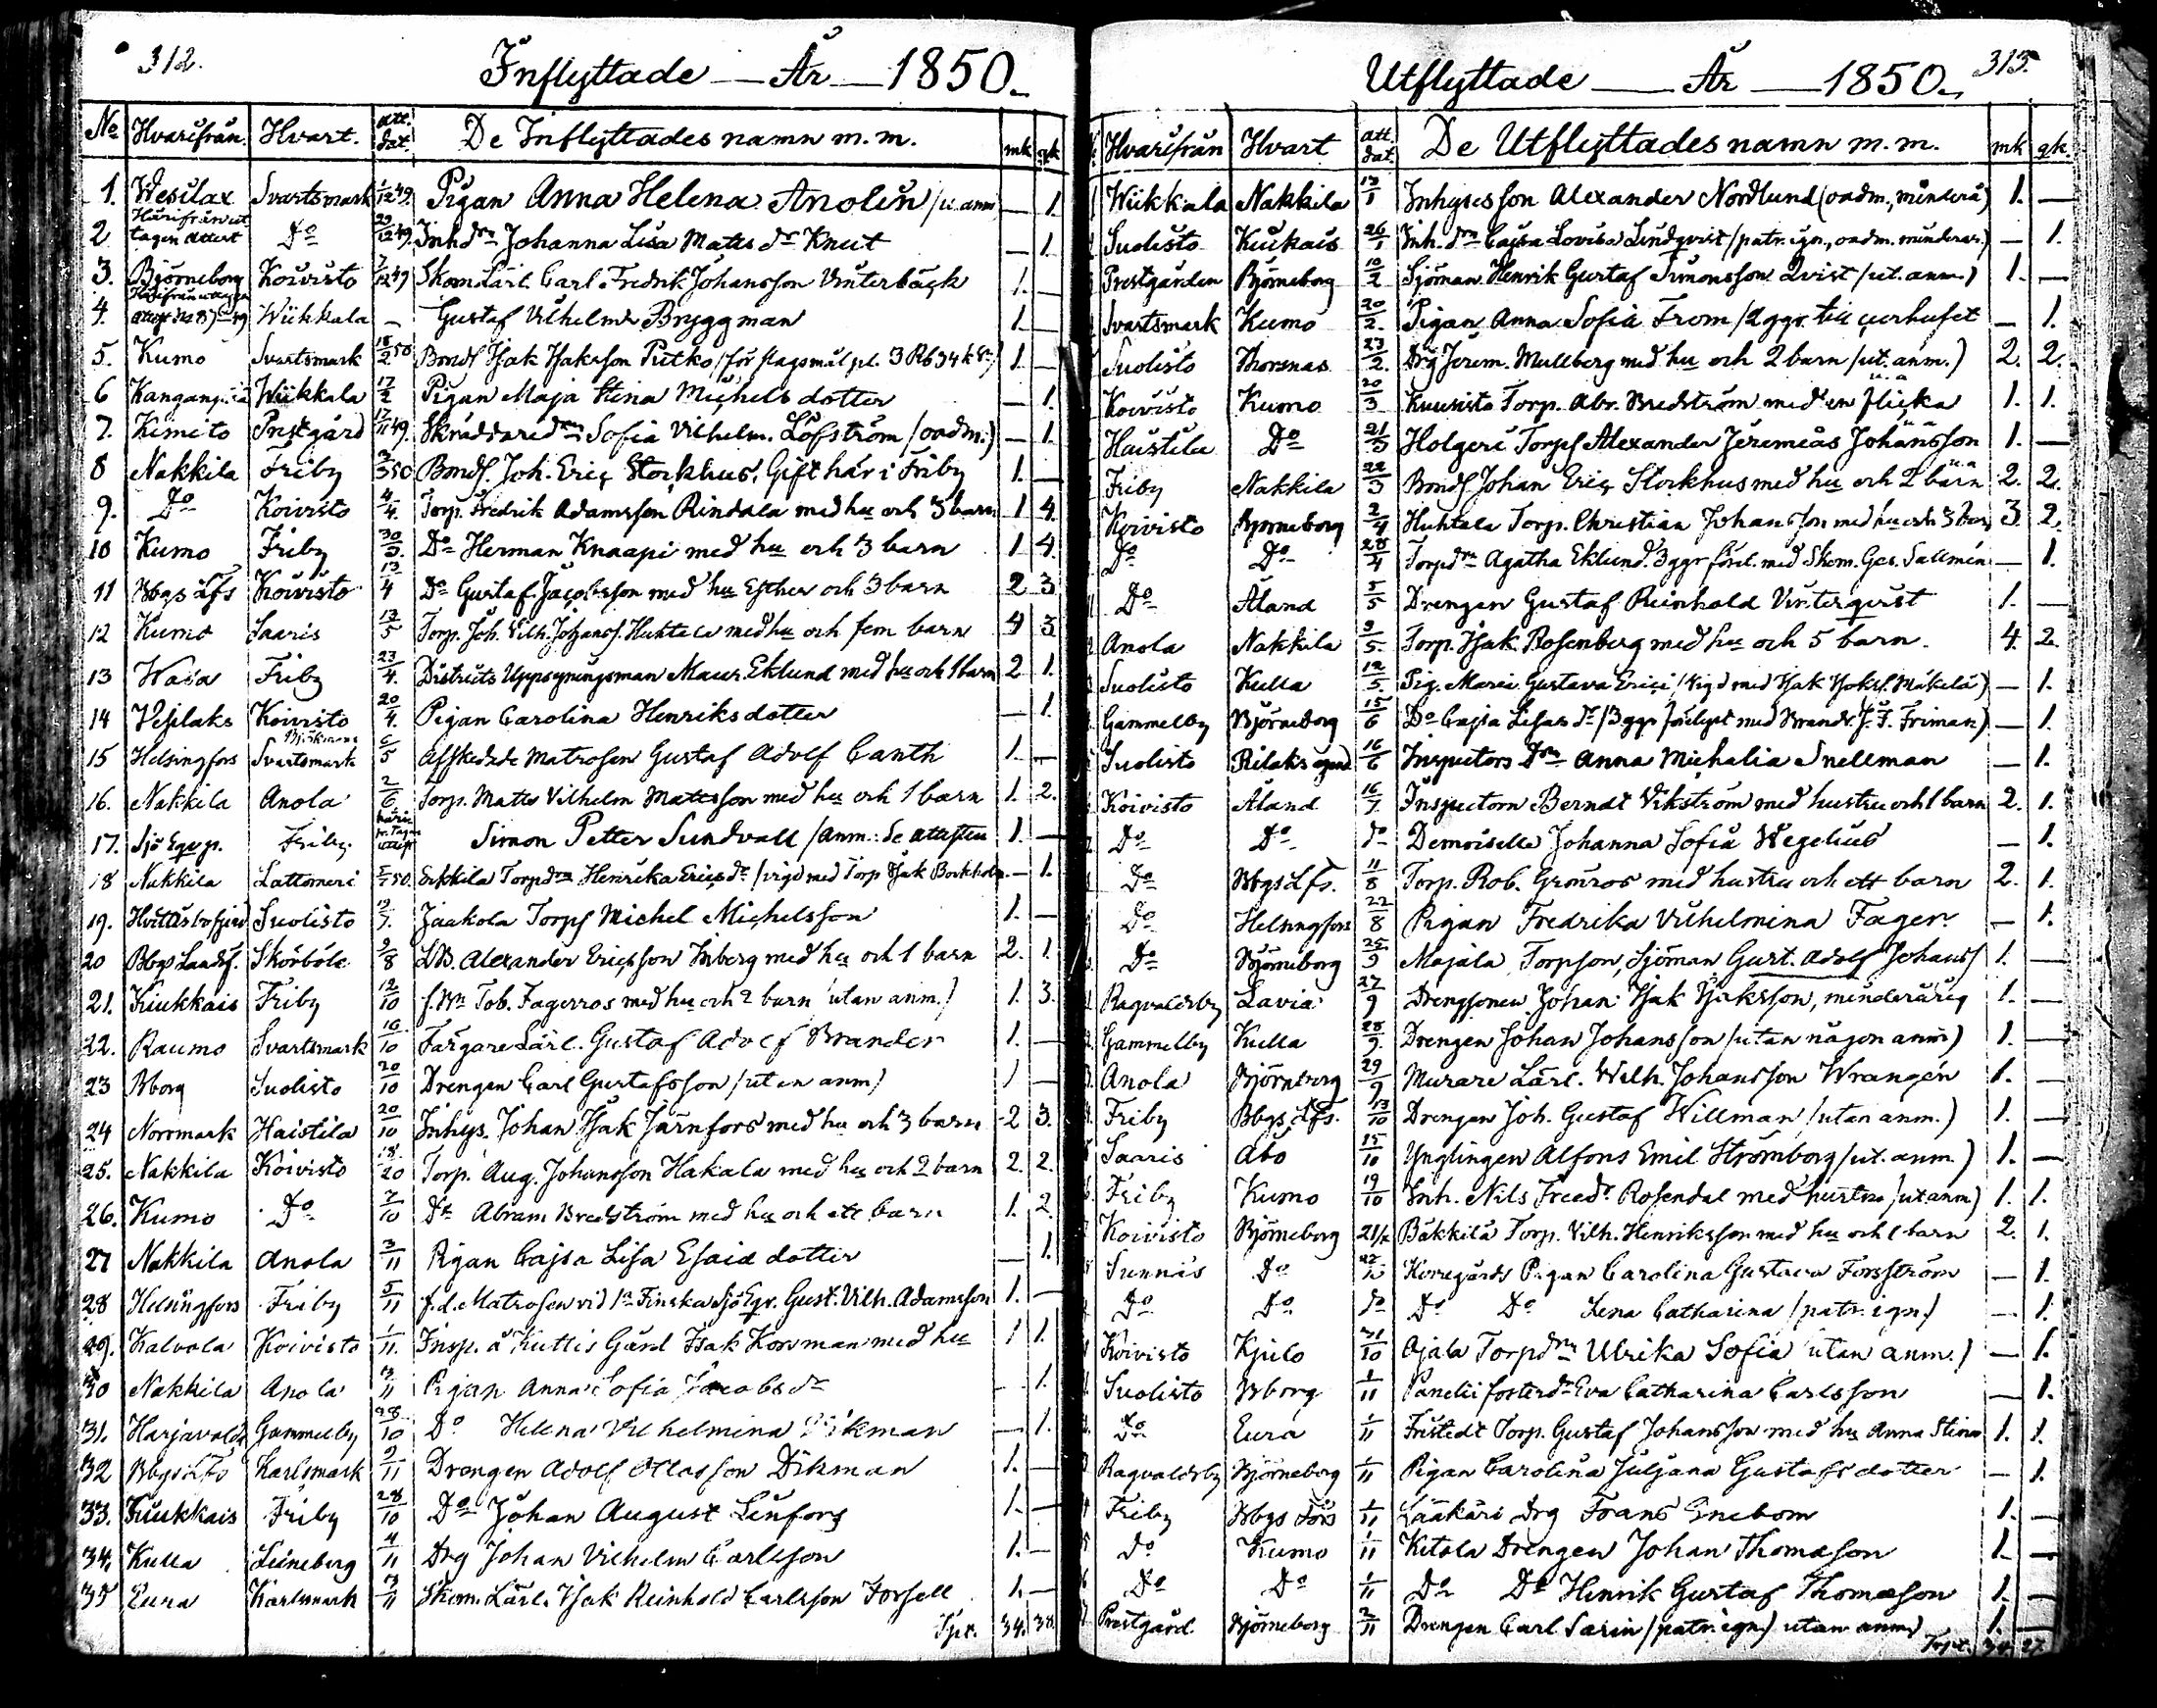 312.
Inflyttade — År — 1850.
No Hvarifrån. Hvart. att. dat. De Inflyttades namn m.m. mk qk
1. Wesilax Svartsmark 1/12 49. Pigan Anna Helena Anolin /u. anm — 1.
2 Härifrån ut tagen attest Do 29/12 49. Inhdrn Johanna Lisa Mats dr Knut — 1.
3. Björneborg Koivisto 7/12 49 Skom. Lärl. Carl Fredrik Johansson Vinterbäck 1. —
4. Wiikkala — Gustaf Vilhelm Bryggman 1. —
5. Kumo Svartsmark 18/2 50 Bonds. Isak Isaksson Putko /för slagsmål pl. 3 Rb 34 k Sr/ 1. —
6 Kanganpää Wiikkala 17/2 Pigan Maja Stina Michels dotter — 1.
7. Kimito Prstgård 17/11 49. Skräddaredrn Sofia Vilhelm. Löfström /oadm.) — 1.
8 Nakkila Friby 3/3 50 Bonds. Joh. Eric Storkhus, Gift här i Friby 1. —
9. Do Koivisto 4/4. Torp. Fredrik Adamsson Rindala med hu och 3 barn 1 4.
10 Kumo Friby 30/3. Do Herman Knaapi med hu och 3 barn 1 4.
11 Bbgs Lfs Koivisto 13/4 Do Gustaf Jacobsson med hu Esther och 3 barn 2 3
12 Kumo Saaris 13/5 Torp. Joh. Vilh. Johanss. Huhtala med hu och fem barn 4 3
13 Wasa Friby 23/4. Districts Uppsyningsman Maur. Eklund med hu och 1 barn 2 1.
14 Vesilaks Koivisto 20/4. Pigan Carolina Henriksdotter — 1.
15 Helsingfors Svartsmark 6/5 Afskedade Matrosen Gustaf Adolf Canth 1. —
16. Nakkila Anola 2/6. Torp. Matts Vilhelm Mattsson med hu och 1 barn 1. 2.
17. Sjö Eqvp. Friby Simon Petter Sundvall /anm.: Se attesten 1. —
18 Nakkila Lattomeri 50. Erkkila Torpdrn Henrika Erics dr /vigd med Torp Isak Borkholm — 1.
19. Hvittisbofjerd Suolisto 7. Jaakola Torps Michel Michelsson 1. —
20 Bbgs Landsf. Skörböle 9/8 LB. Alexander Ericsson Inberg med hu och 1 barn 2. 1.
21. Kiukkais Friby 12/10 f. Bn Tob. Fagerros med hu och 2 barn /utan anm.) 1. 3.
22. Raumo Svartsmark 16/10 Färgare Lärl. Gustaf Adolf Brander 1. —
23 Bborg Suolisto 20/10 Drengen Carl Gustafsson /utan anm/ 1 —
24 Norrmark Haistila 20/10 Inhys. Johan Isak Järnfors med hu och 3 barn 2 3.
25. Nakkila Koivisto 18/20 Torp. Aug. Johansson Hakala med hu och 2 barn 2. 2.
26. Kumo Do 7/10 Do Abram Bredström med hu och ett barn 1. 2.
27 Nakkila Anola 3/11 Pigan Cajsa Lisa Esaia dotter — 1.
28 Helsingfors Friby 5/11 f.d. Matrosen vid 1a Finska Sjö Eqv. Gust. Vilh. Adamsson 1. —
29. Kalvola Koivisto 1/11. Insp. å Kuttis Gård Isak Korsman med hu 1 1.
30 Nakkila Anola 13/11 Pigan Anna Sofia Jacobs dr — 1.
31. Harjavalda Gammelby 28/10 Do Helena Vilhelmina Dikman — 1.
32 Bbgs Lfs Karlsmark 9/11 Drengen Adolf Ottosson Dikman 1. —
33. Kiukkais Friby 28/10 Do Johan August Lenfors 1. —
34. Kulla Leineberg 4/11 Drg Johan Vilhelm Carlsson 1. —
35 Eura Karlsmark 13/11 Skom. Lärl. Isak Reinhold Carlsson Forsell 1. —
Tpt. 34. 38.
313.
Utflyttade — År — 1850.
Hvarifrån Hvart att. dat. De Utflyttades namn m.m. mk qk.
Wiikkala Nakkila 13/1 Inhysesson Alexander Nordlund (oadm., minderå) 1. —
Suolisto Kiukais 26/1 Inh. drn Cajsa Lovisa Lindqvist /patr. ign., oadm. minderår.) — 1.
Prestgården Björneborg 10/2 Sjöman Henrik Gustaf Simonsson Qvist /ut. anm/ 1. —
Svartsmark Kumo 20/2. Pigan Anna Sofia From /2 ggr. till curhuset — 1.
Suolisto Thorsnäs 23/2. Drg Jerem. Mullberg med hu och 2 barn /ut. anm.) 2. 2.
Koivisto Kumo 20/3 Kuusisto Torp. Abr. Bredström med en flicka 1. 1.
Haistila Do 21/3 Holgeri Torps Alexander Jeremias Johansson 1. —
Friby Nakkila 22/3 Bonds Johan Eric Storkhus med hu och 2 barn 2. 2.
Koivisto Björneborg 2/4 Huhtala Torp. Christian Johansson med hu och 3 barn 3 2.
Do Do 28/4 Torpdrn Agatha Eklund. 3 ggr förel. med Skom. Ges. Sallmén — 1.
Do Åland 5/5 Drengen Gustaf Reinhold Vinterqvist 1. —
Anola Nakkila 9/5. Torp. Isak Rosenberg med hu och 5 barn. 4. 2.
Suolisto Kulla 12/5. Pig. Maria Gustava Erici /Vigd med Isak Isakss. Mäkelä) — 1.
Gammelby Björneborg 15/6 Do Cajsa Lisa dr /3 ggr förlyst med Brandv. J. F. Friman) — 1.
Suolisto Rilaks egend 16/6 Inspectors Drn Anna Michalia Snellman — 1.
Koivisto Åland 16/7. Inspectorn Berndt Vikström med hustru och 1 barn 2. 1.
Do Do do Demoiselle Johanna Sofia Wegelius — 1.
Do Bbgs Lfs. 11/8 Torp. Rob. Grönros med hustru och ett barn 2. 1.
Do Helsingfors 22/8 Pigan Fredrika Vilhelmina Fager — 1.
Do Björneborg 25/9 Majala Torpson, Sjöman Gust. Adolf Johanss 1. —
Ragvaldsby Lavia 27/9 Drengsonen Johan Isak Isaksson, minderårig 1. —
Gammelby Kulla 28/9. Drengen Johan Johansson /utan någon anm) 1. —
Anola Björneborg 29/9 Murare Lärl. Wilh. Johansson Wrangén 1. —
Friby Bbgs Lfs. 13/10 Drengen Joh. Gustaf Willman /utan anm.) 1. —
Saaris Åbo 15/10 Ynglingen Alfons Emil Strömborg /ut. anm.) 1. —
Friby Kumo 19/10 Inh. Nils Fredr. Rosendal med hustru /ut anm) 1. 1.
Koivisto Björneborg Bäkkilä Torp. Vilh. Henriksson med hu och 1 barn 2. 1.
Sunnäs Do Herregårds Pigan Carolina Gustava Forsström — 1.
Do Do do Do Do Lena Catharina /patr. ign/ — 1.
Koivisto Kjulo 31/10 Ojala Torpdrn Ulrika Sofia /utan anm.) — 1.
Suolisto Bborg 1/11 Panelii fosterdr Eva Catharina Carlsson — 1.
Do Eura 1/11 Fristedt Torp. Gustaf Johansson med hu Anna Stina 1. 1.
Ragvaldsby Björneborg 1/11 Pigan Carolina Juljana Gustafsdotter — 1.
Friby Bbgs Lfs 1/11 Lääkäri Drg Frans Enebom 1. —
Do Kumo 1/11 Kitola Drengen Johan Thomasson 1. —
Do Do 1/11 Do Do Henrik Gustaf Thomasson 1. —
Prestgård. Björneborg 2/11 Drengen Carl Sarin /patr. ign) utan anm) 1. —
Trpt. 34. 27.